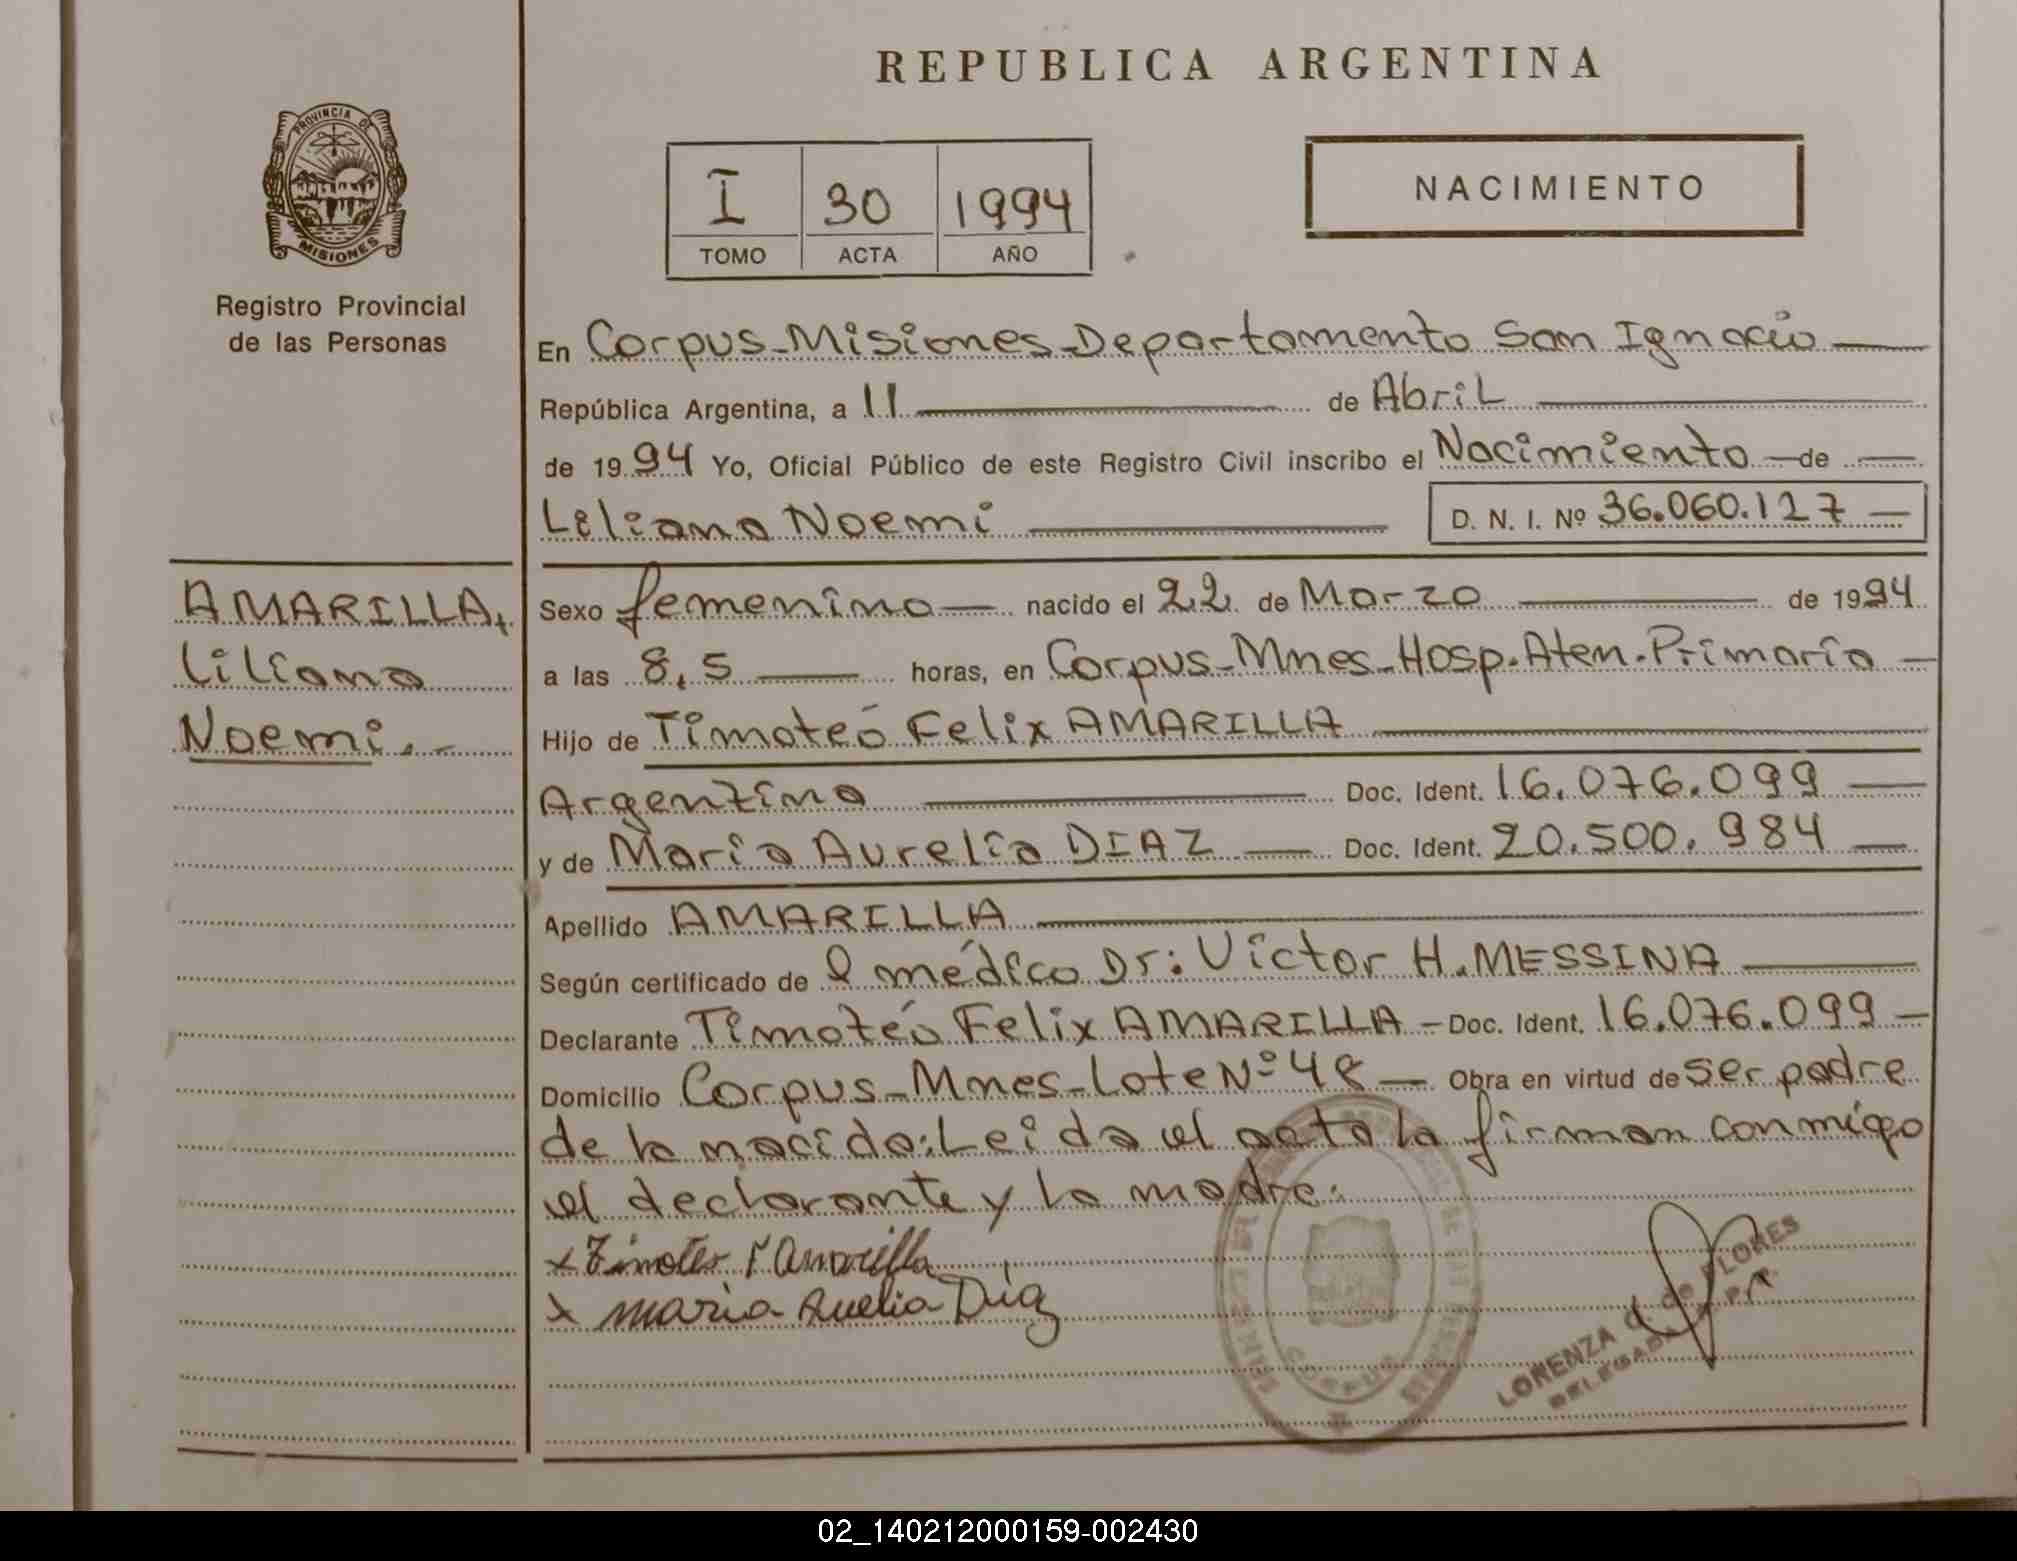 REPUBLICA ARGENTINA
PROVINCIA DE
MISIONES
Registro Provincial
de las Personas
I 30 1994
TOMO ACTA AÑO
NACIMIENTO
En Corpus-Misiones-Departamento San Ignacio
República Argentina, a 11 de Abril
de 1994 Yo, Oficial Público de este Registro Civil inscribo el Nacimiento de
Liliana Noemi D. N. I. Nº 36.060.127
AMARILLA,
Liliana
Noemi.-
Sexo femenino nacido el 22 de Marzo de 1994
a las 8,5 horas, en Corpus-Mnes-Hosp.Aten.Primaria
Hijo de Timoteó Felix AMARILLA
Argentino Doc. Ident. 16.076.099
y de Maria Aurelia DIAZ Doc. Ident. 20.500.984
Apellido AMARILLA
Según certificado de l médico Dr: Victor H. MESSINA
Declarante Timoteó Felix AMARILLA - Doc. Ident. 16.076.099
Domicilio Corpus-Mnes-Lote Nº 48 Obra en virtud de ser padre
de la nacida: Leida el acta la firman conmigo
el declarante y la madre.
x Timoteo F Amarilla
x Maria Auelia Diaz
CORPUS
LORENZA de FLORES
DELEGADA
02_140212000159-002430